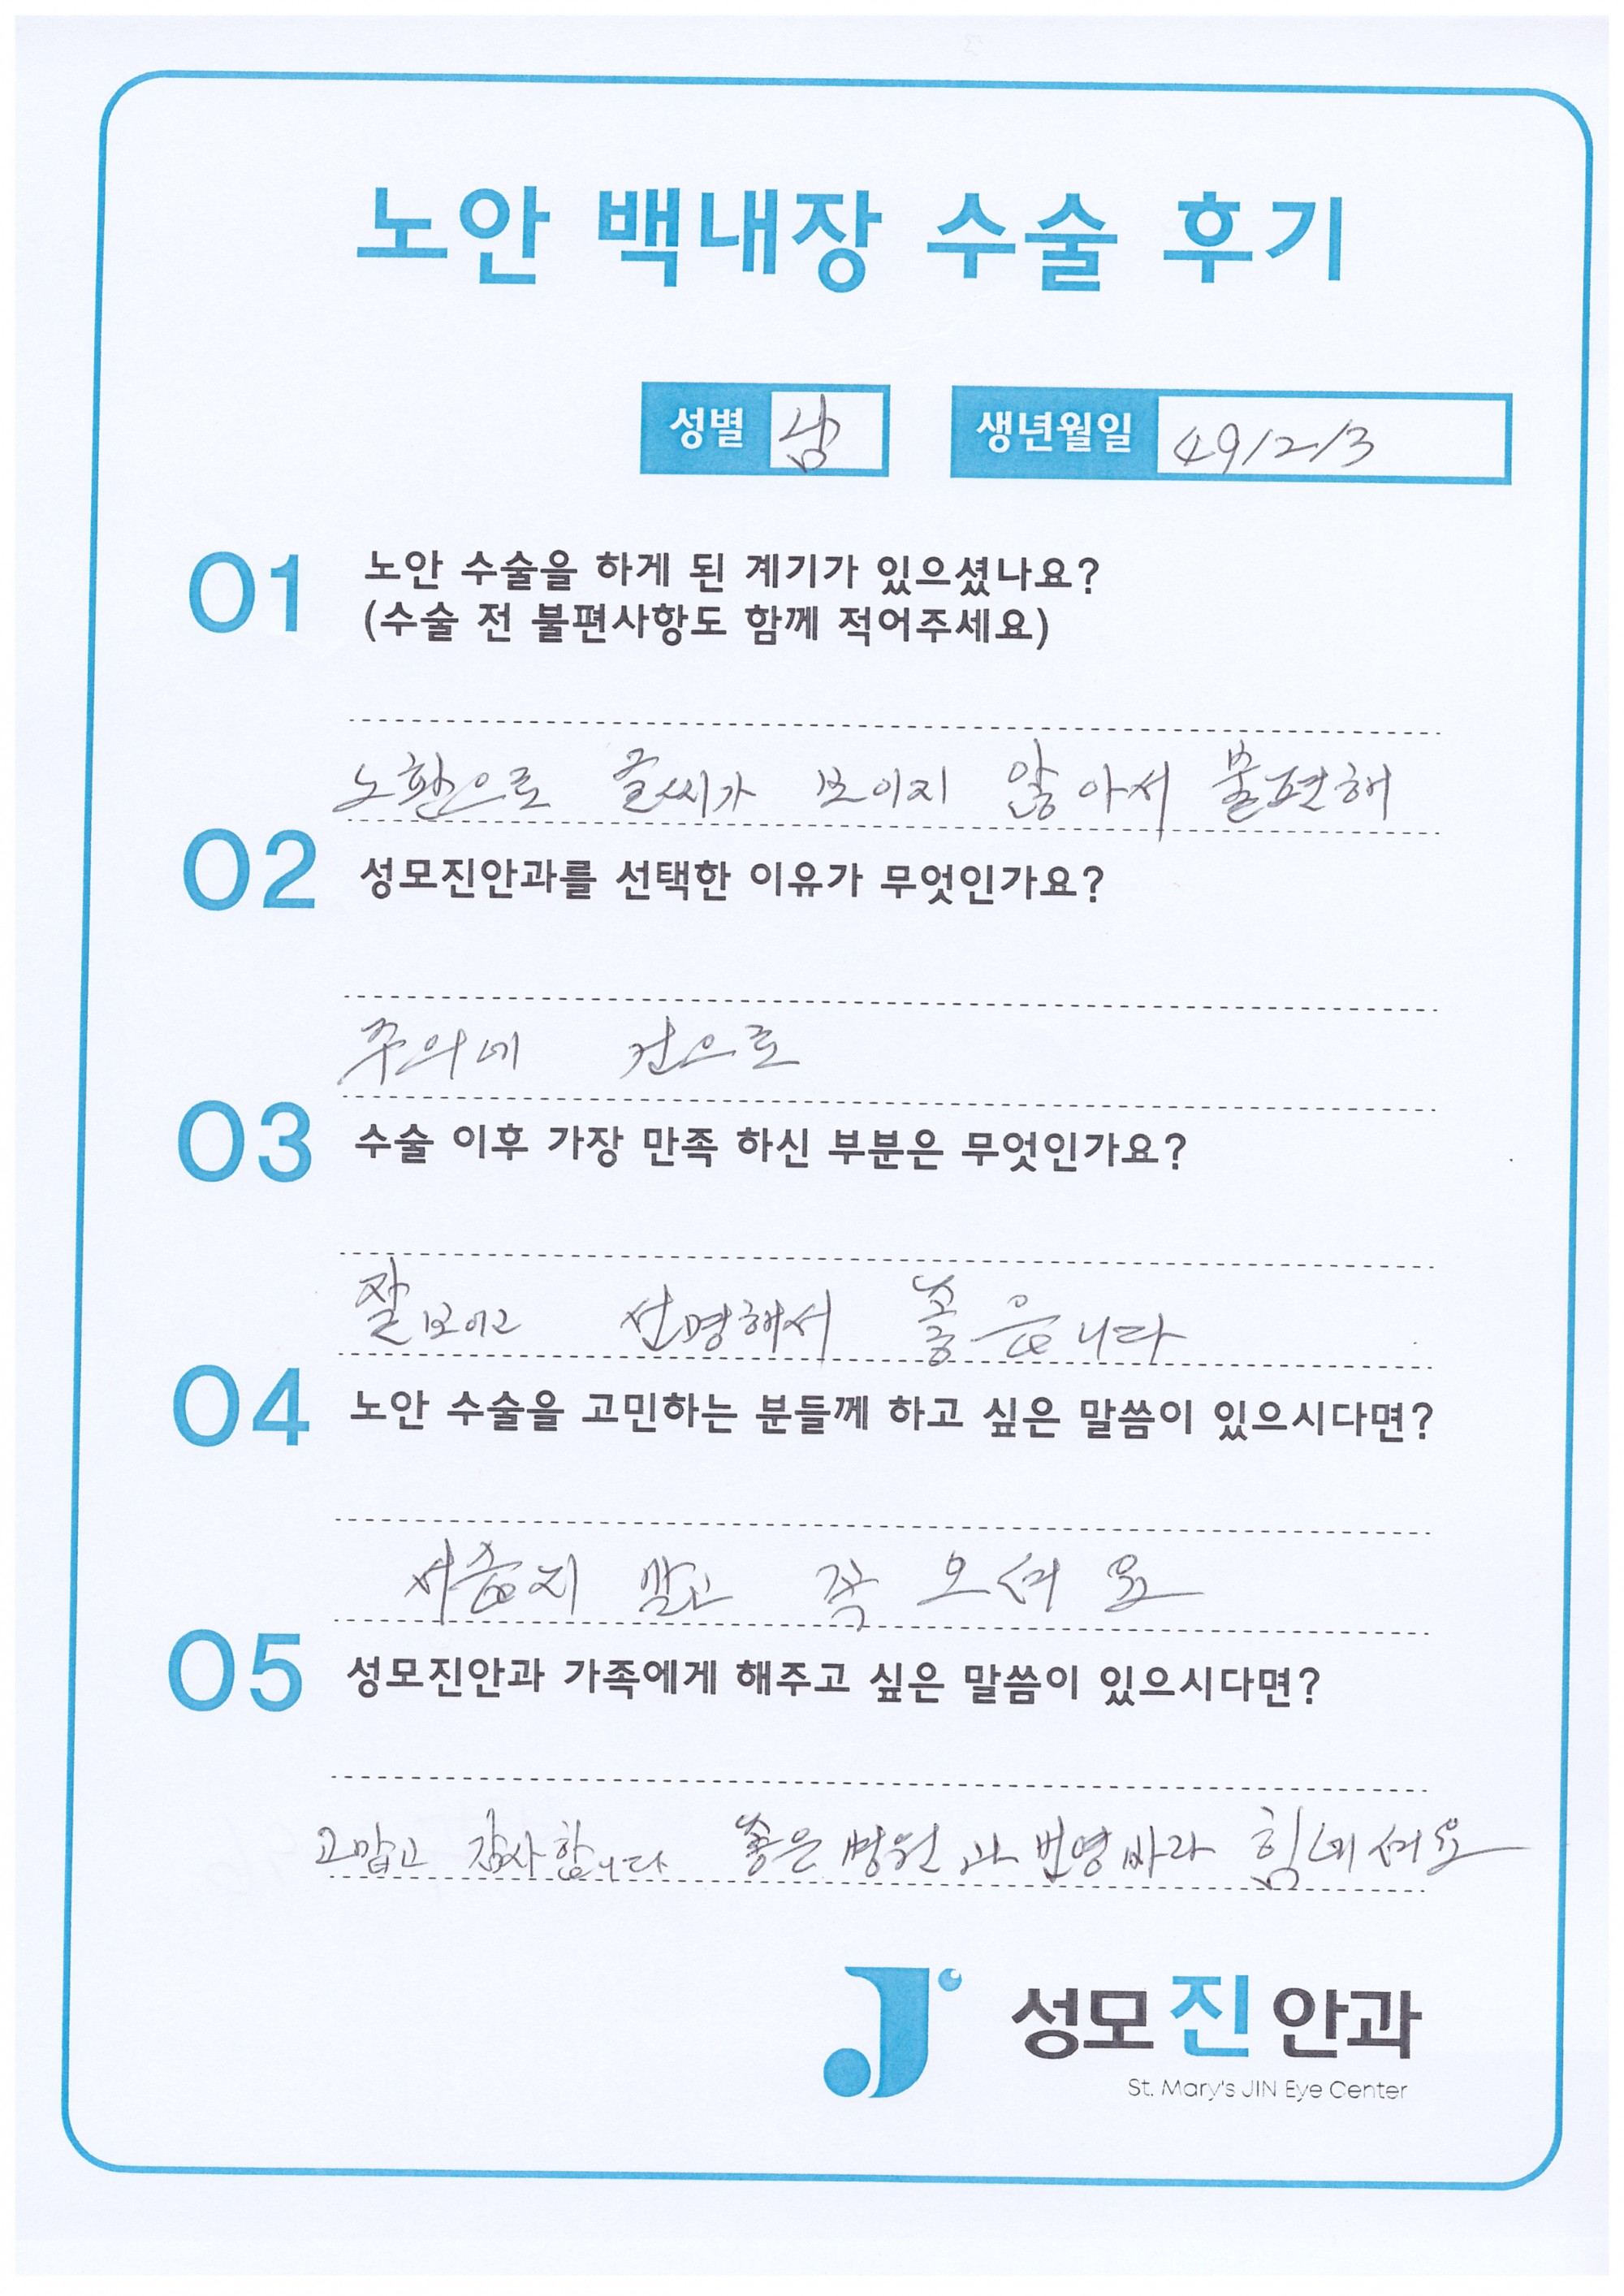 노안 백내장 수술 후기
성별 남 생년월일 491213
01 노안 수술을 하게 된 계기가 있으셨나요?
(수술 전 불편사항도 함께 적어주세요)
노환으로 글씨가 보이지 않아서 불편해
02 성모진안과를 선택한 이유가 무엇인가요?
주의에
03 수술 이후 가장 만족 하신 부분은 무엇인가요?
잘보이고 선명해서 좋습니다
04 노안 수술을 고민하는 분들께 하고 싶은 말씀이 있으시다면?
말고 꼭 오셔요
05 성모진안과 가족에게 해주고 싶은 말씀이 있으시다면?
고맙고 감사합니다 좋은 병원 과 번영 바라 힘내셔요
성모진안과
St. Mary's JIN Eye Center